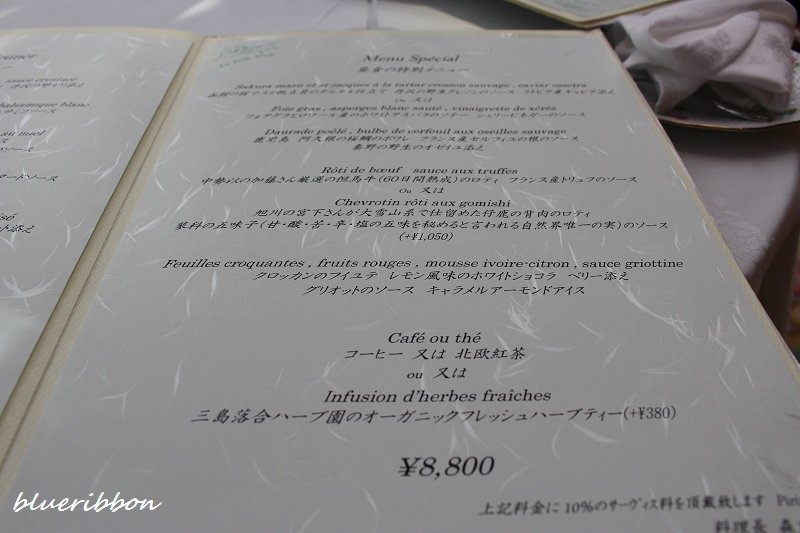 Menu Spécial
昼食の特別メニュー
Sakura-masu et st-jacques à la tartar cresson sauvage , caviar oscetra
函館の桜マスと帆立貝のタルタル仕立て 丹沢の野生クレソンのソース ラトビア産キャビア添え
Ou 又は
Foie gras , asperges blanc sauté , vinaigrette de xérès
フォアグラとロワール産のホワイトアスパラのソテー シェリービネガーのソース
Daurade poêlé , bulbe de cerfeuil aux oseilles sauvage
鹿児島 阿久根の桜鯛のポワレ フランス産セルフィユの根のソース
秦野の野生のオゼイユ添え
Rôti de bœuf sauce aux truffes
中勢以の加藤さん厳選の但馬牛(60日間熟成)のロティ フランス産トリュフのソース
Ou 又は
Chevrotin rôti aux gomishi
旭川の宮下さんが大雪山系で仕留めた仔鹿の背肉のロティ
蓼科の五味子(甘・酸・苦・辛・塩の五味を秘めると言われる自然界唯一の実)のソース
(+¥1,050)
Feuilles croquantes , fruits rouges , mousse ivoire-citron , sauce griottine
クロッカンのフイユテ レモン風味のホワイトショコラ ベリー添え
グリオットのソース キャラメルアーモンドアイス
Café ou thé
コーヒー 又は 北欧紅茶
ou 又は
Infusion d'herbes fraîches
三島落合ハーブ園のオーガニックフレッシュハーブティー(+¥380)
¥8,800
上記料金に10%のサーヴィス料を頂戴致します
料理長 森
blueribbon
sauce crustacé
balsamique blanc